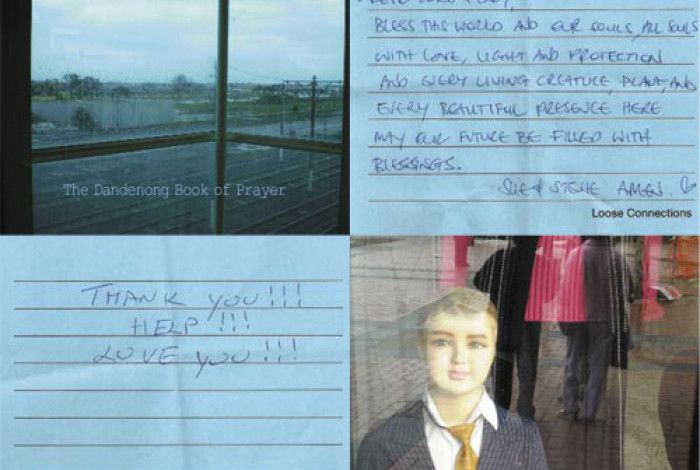 The Dandenong Book of Prayer
BLESS THIS WORLD AND OUR SOULS, ALL SOULS
WITH LOVE, LIGHT AND PROTECTION
AND EVERY LIVING CREATURE, PLANT, AND
EVERY BEAUTIFUL PRESENCE HERE.
MAY OUR FUTURE BE FILLED WITH
BLESSINGS.
SUE & STEVE AMEN.
Loose Connections
THANK YOU!!!
HELP!!!
LOVE YOU!!!